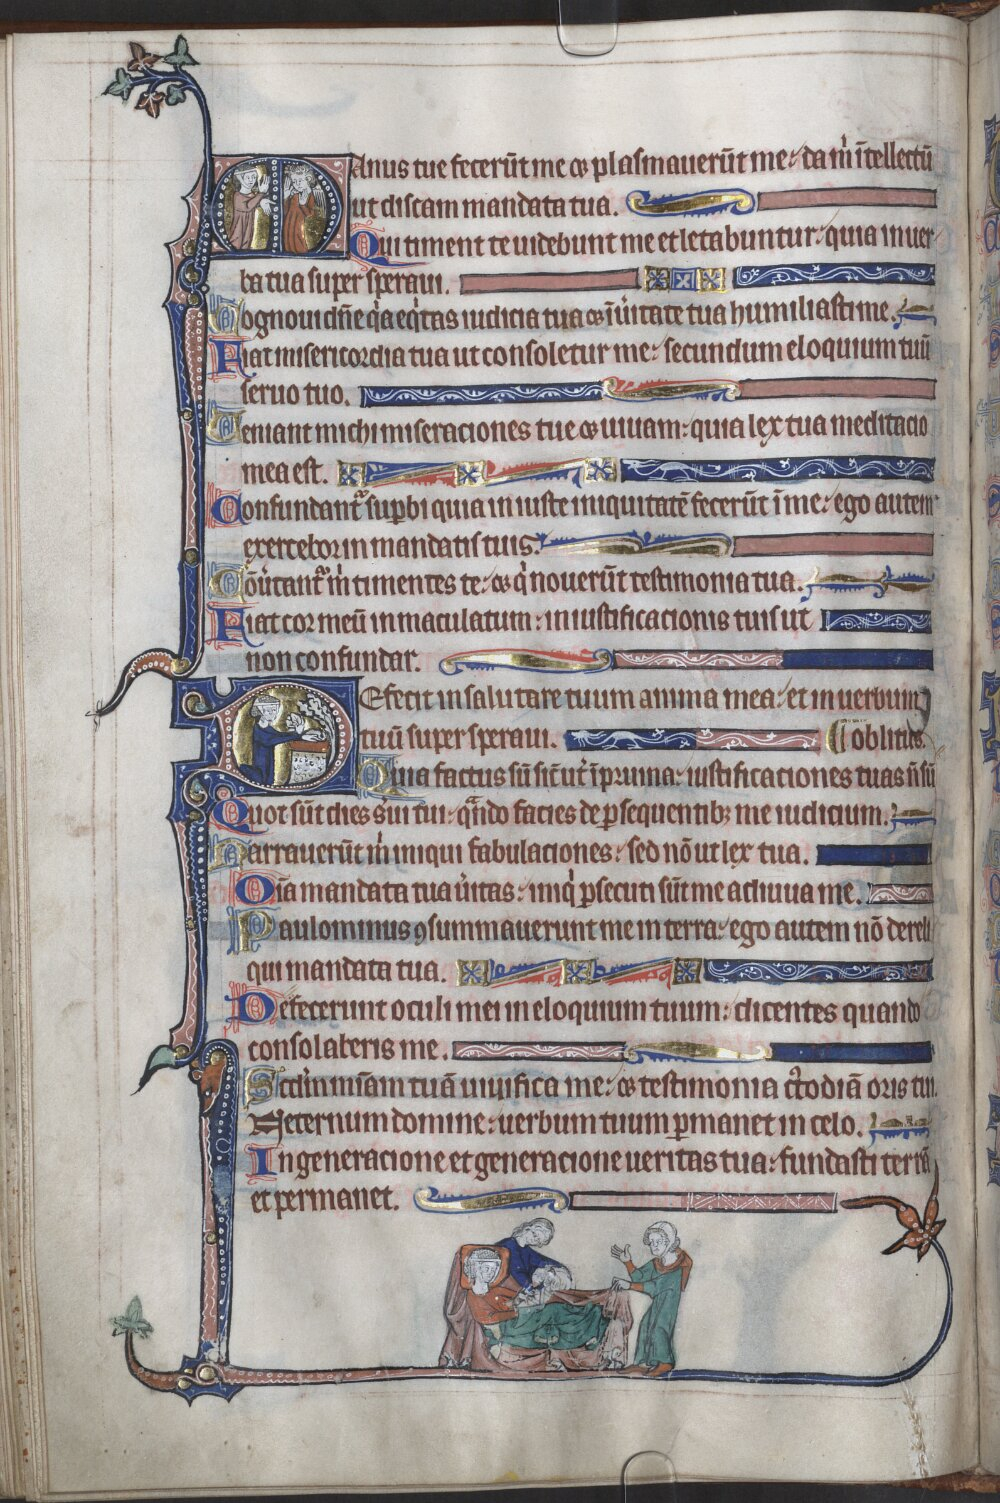 Manus tue fecerūt me ⁊ plasmauerūt me: da m̍ ītellectū
ut discam mandata tua.
Qui timent te uidebunt me et letabuntur: quia in uer
ba tua super speraui.
Cognoui dn̄e q̍a eq̍tas iudicia tua ⁊ ī ūitate tua humiliasti me.
Fiat misericordia tua ut consoletur me: secundum eloquium tuū
seruo tuo.
Ueniant michi miseraciones tue ⁊ uiuam: quia lex tua meditacio
mea est.
Confundant᷑ suꝑbi quia iniuste iniquitatē fecerūt ī me: ego autem
exercebor in mandatis tuis.
Cōūtant᷑ m̍ timentes te: ⁊ q̍ nouerūt testimonia tua.
Fiat cor meū inmaculatum: in iustificacionis tuis ut
non confundar.
Defecit in salutare tuum anima mea: et in uerbum
tuū super speraui. oblitus.
Quia factus sū sic̄ ut̍ ī pruina: iustificaciones tuas n̄ sū
Quot sūt dies s̄ui tui: qᷓndo facies de ꝑsequentibꝫ me iudicium.
Narrauerūt m̍ iniqui fabulaciones: sed nō ut lex tua.
Oīa mandata tua ūitas: iniq̍ ꝑsecuti sūt me adiuua me.
Paulominus ꝯsummauerunt me in terra: ego autem nō dereli
qui mandata tua.
Defecerunt oculi mei in eloquium tuum: dicentes quando
consolaberis me.
Scd̄m mīam tuā uiuifica me: ⁊ testimonia c᷒todiā oris tui.
Aeternum domine: uerbum tuum ꝑmanet in celo.
In generacione et generacione ueritas tua: fundasti terrā
et permanet.